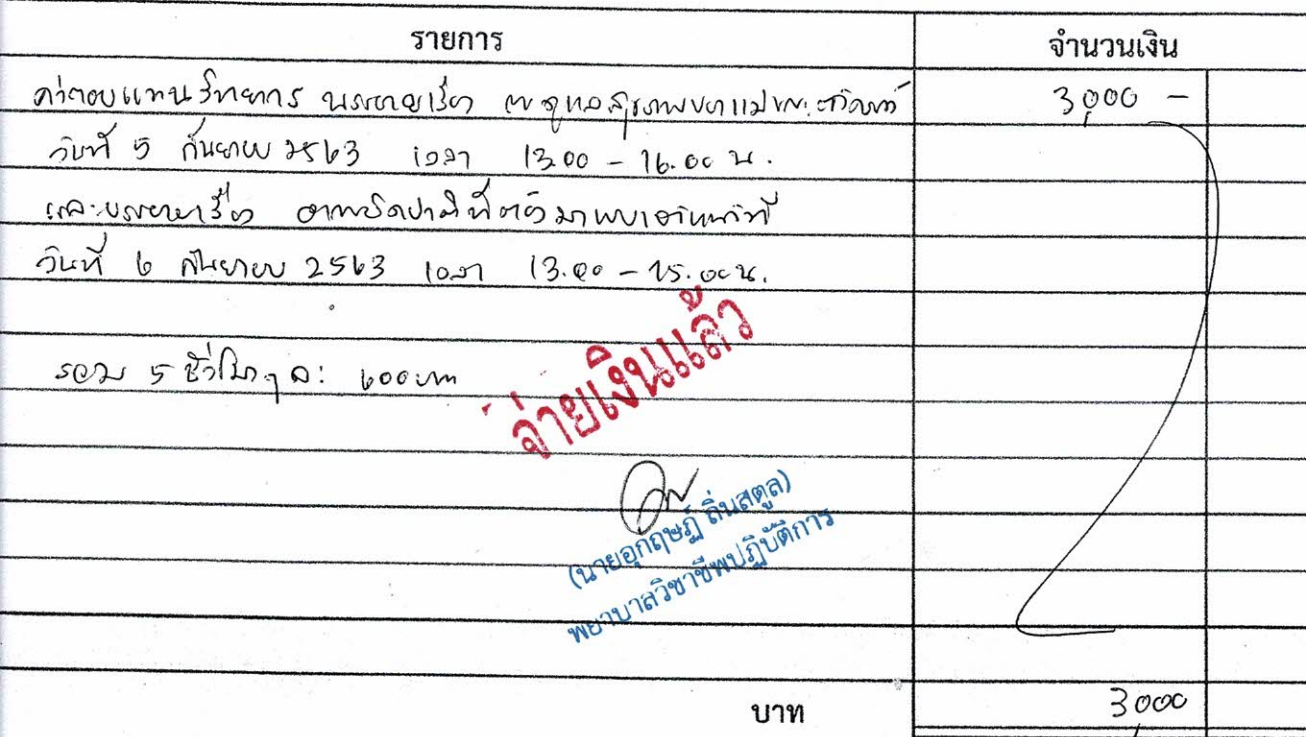 รายการ จำนวนเงิน
ค่าตอบแทนวิทยากร บรรยายเรื่อง การดูแลสุขภาพขณะตั้งครรภ์ 3,000 -
วันที่ 5 กันยายน 2563 เวลา 13.00 - 16.00 น.
และบรรยายเรื่อง อาการผิดปกติที่ต้องมาพบเจ้าหน้าที่
วันที่ 6 กันยายน 2563 เวลา 13.00 - 15.00 น.
รวม 5 ชั่วโมง ๆ ละ 600 บาท
จ่ายเงินแล้ว
(นายอุกฤษฏ์ ถิ่นสตูล)
พยาบาลวิชาชีพปฏิบัติการ
บาท 3,000